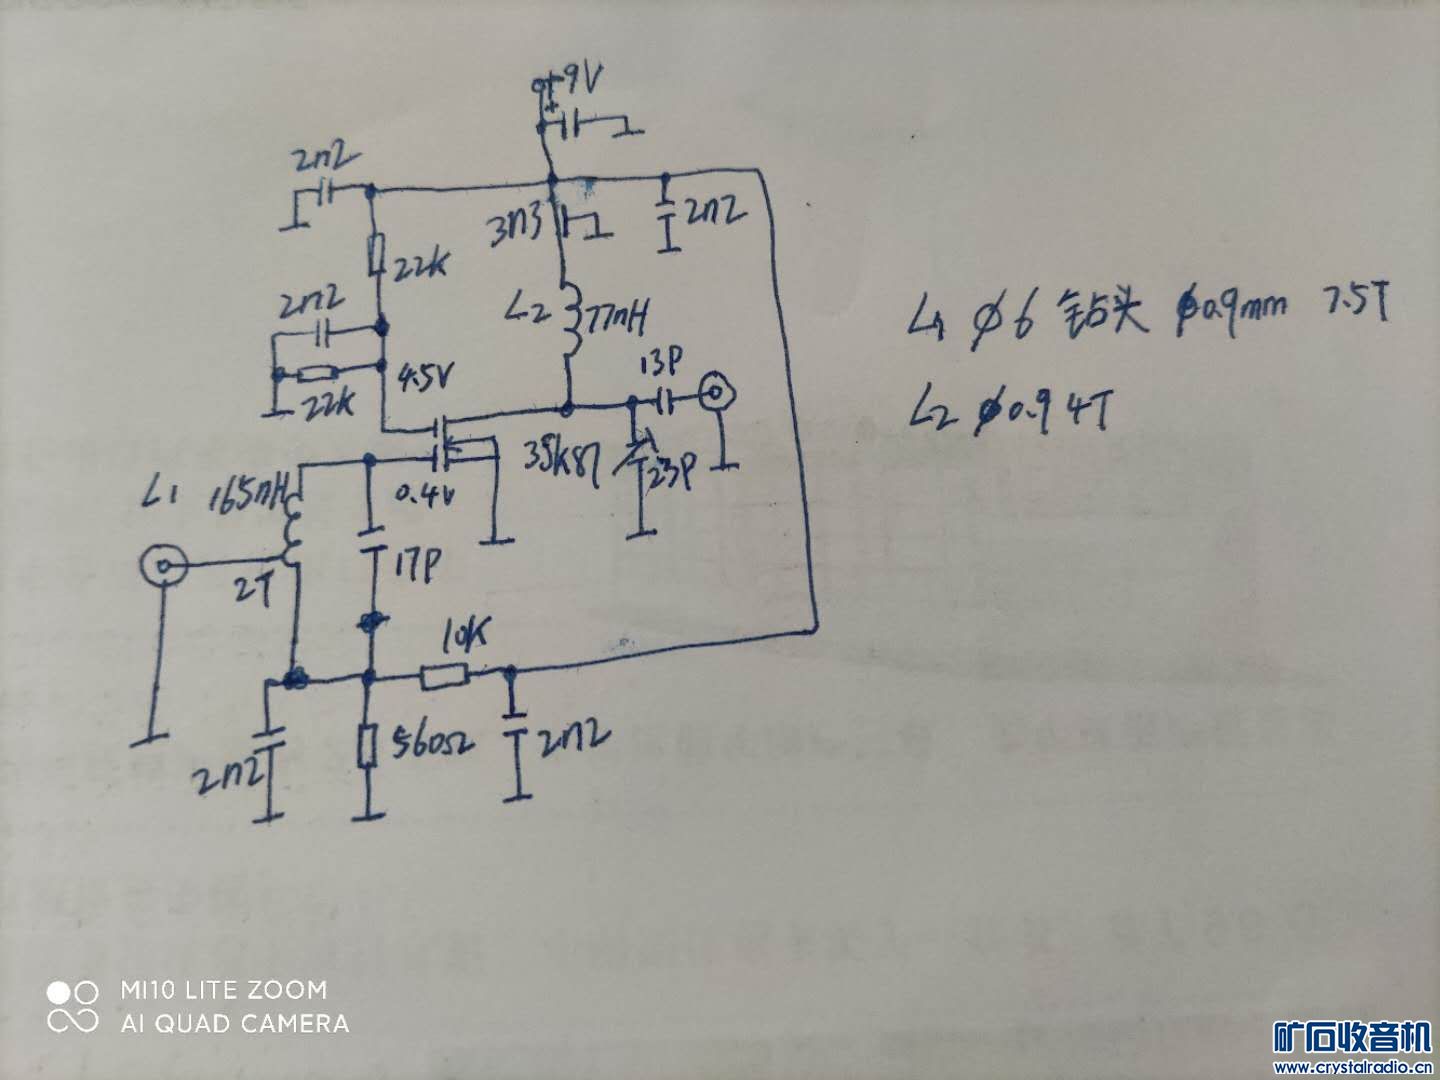 +9V
+
2n2
3n3
2n2
22K
2n2
L2
77nH
L1 φ6 钻头 φ0.9mm 7.5T
22K
4.5V
13P
L2 φ0.9 4T
L1
165nH
0.4V
3SK87
23P
2T
17P
10K
2n2
560Ω
2n2
MI10 LITE ZOOM
AI QUAD CAMERA
矿石收音机
www.crystalradio.cn